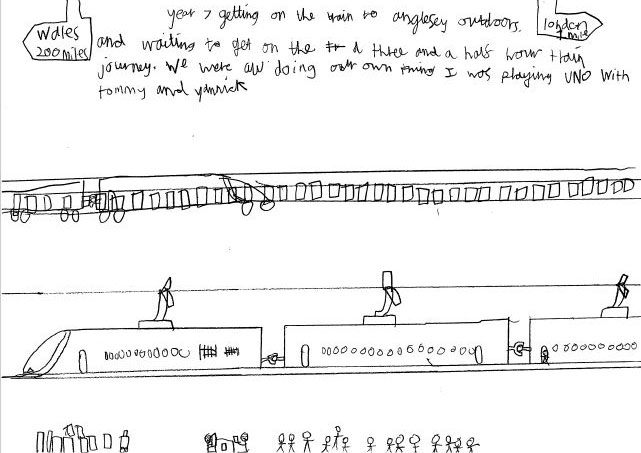 year 7 getting on the train to anglesey outdoors.
Wales
200 miles
london
1 mile
and waiting to get on the a three and a half hour train
journey. We were all doing our own thing I was playing UNO with
tommy and yannick